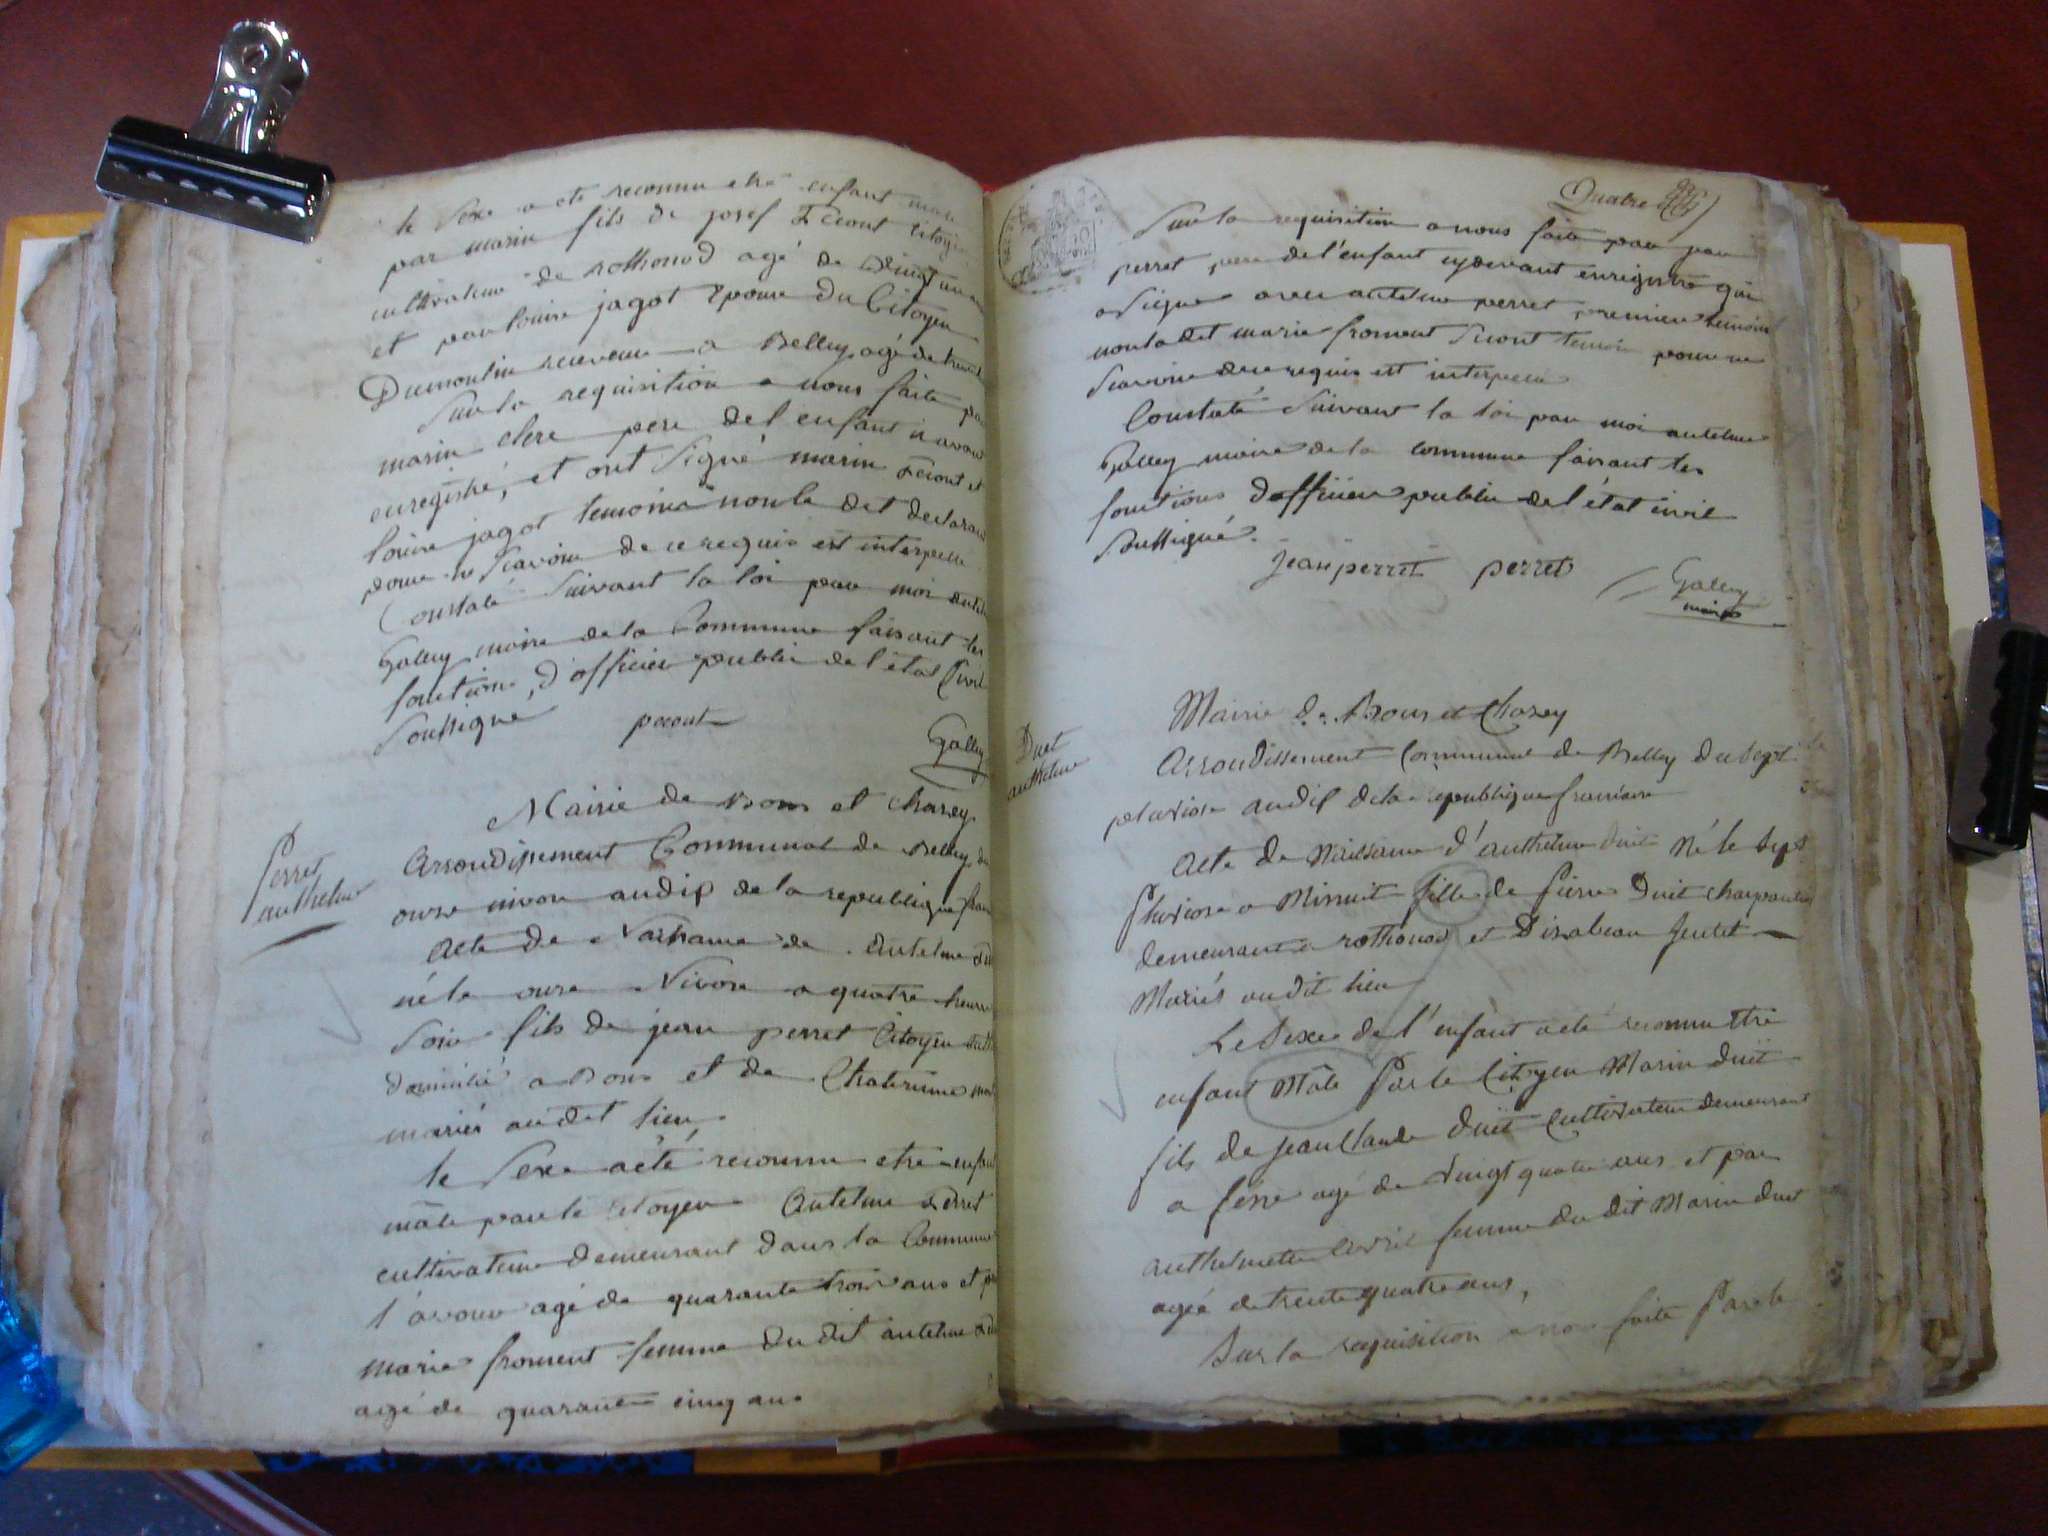 le Sexe a ete reconnu etre enfant male
par marin fils de josef citoyen
cultivateur de rothonod agé de vingt un
et par louise jagot Epouse du Citoyen
Dumoulin receveur a Belley agé de trente
Sur la requisition a nous faite par
marin clere pere de l'enfant ci avant
enregistré, et ont Signé marin et
louise jagot temoins non la dit declarant
pour ne Scavoir de ce requis est interpellé
Constaté Suivant la loi par moi
Galley maire de la Commune faisant les
fonctions d'officier public de l'état Civil
Soussigné
Galley
Perret
anthelme
Mairie de Bons et Chazey
Arrondissement Communal de Belley du
onze nivose an dix de la republique
Acte de Naissance de Antelme
né le onze Nivose a quatre heures
Soir fils de jean perret Citoyen
domicilié a Bons et de Chaterinne
mariés au dit lieu
le Sexe a été reconnu etre enfant
mâle par le citoyen Antelme Perret
cultivateur demeurant dans la Commune
agé de quarante trois ans et par
marie froment femme du dit antelme
agé de quarante cinq ans
Quatre
Sur la requisition a nous faite par jean
perret pere de l'enfant cydevant enregistré qui
a Signé avec antelme perret premier temoins
non la dit marie froment temoin pour ne
Scavoir de ce requis est interpellé
Constaté Suivant la loi par moi antelme
Galley maire de la commune faisant les
fonctions d'officier public de l'état civil
Soussigné.
jean perret perret Galley
maire
Duet
anthelme
Mairie de Bons et Chazey
Arrondissement Communal de Belley du sept
pluviose an dix de la republique francaise
Acte de Naissance d'anthelme duit Né le sept
Pluviose a Minuit fille de Pierre Duit charpentier
demeurant a rothonod et Disabeau
Mariés au dit lieu
Le Sexe de l'enfant a eté reconnu etre
enfant Mâle Par le Citoyen Marin duit
fils de jean Claude duit Cultivateur demeurant
a agé de vingt quatre ans et par
anthelmette femme du dit Marin duit
agée de trente quatre ans,
Sur la requisition a nous faite Par le